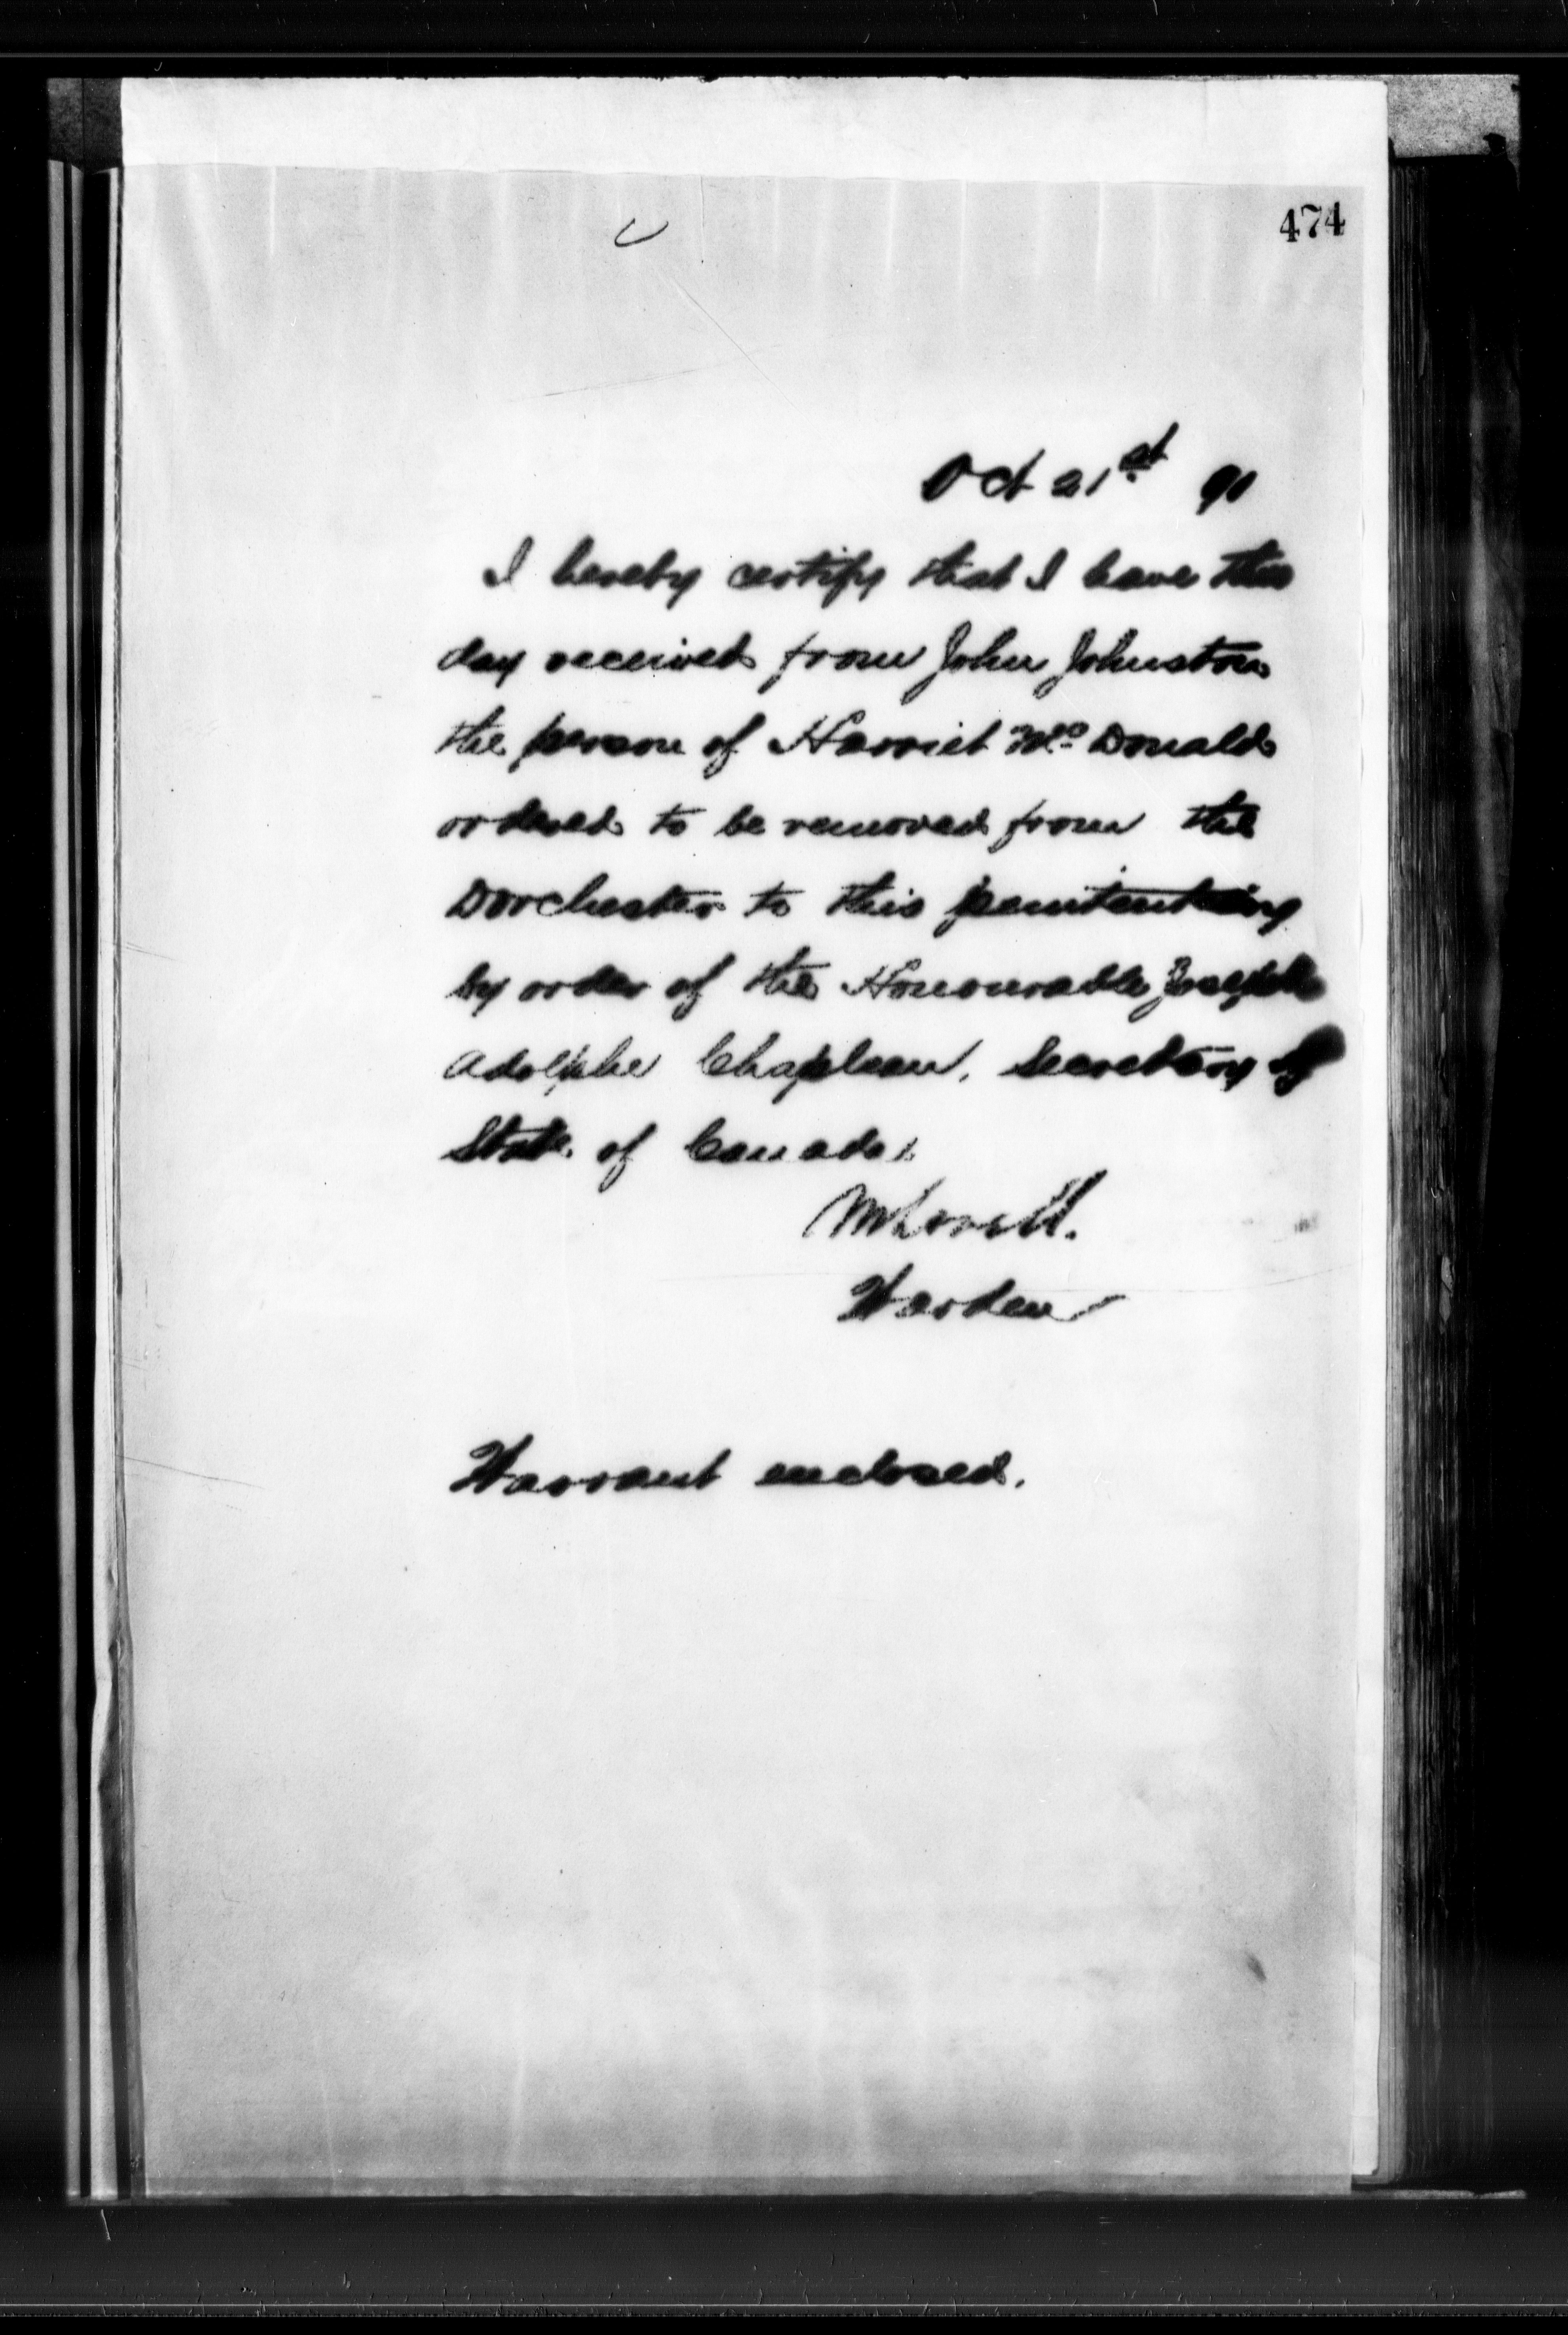 474
Oct 21st 91
I hereby certify that I have this
day received from John Johnston
the person of Harriet McDonald
ordered to be removed from the
Dorchester to this penitentiary
by order of the Honourable Joseph
Adolphe Chapleau, Secretary of
State of Canada.
M Lavell.
Warden
Warrant enclosed.